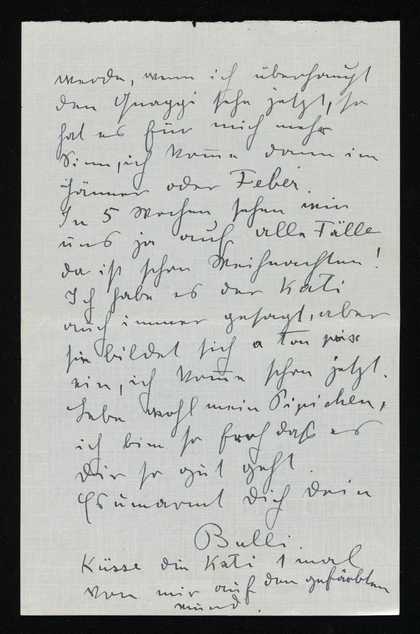 werde, wenn ich überhaupt
den Guaggi sehe jetzt, so
hat es für mich mehr
Sinn, ich kom̅e dann im
Jänner oder Feber.
In 5 Wochen sehen wir
uns ja auf alle Fälle
da ist schon Weihnachten!
Ich habe es der Kati
auch immer gesagt, aber
sie bildet sich a ton
ein, ich kom̅e schon jetzt.
Lebe wohl mein Pipichen,
ich bin so froh daß es
Dir so gut geht.
Es umarmt Dich Dein
Bulli
Küsse die Kati 1 mal
von mir auf den gefärbten
mund.